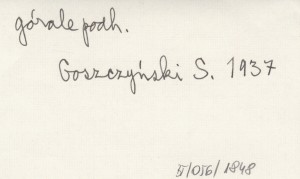 górale podh.
Goszczyński S. 1937
II/056/1848